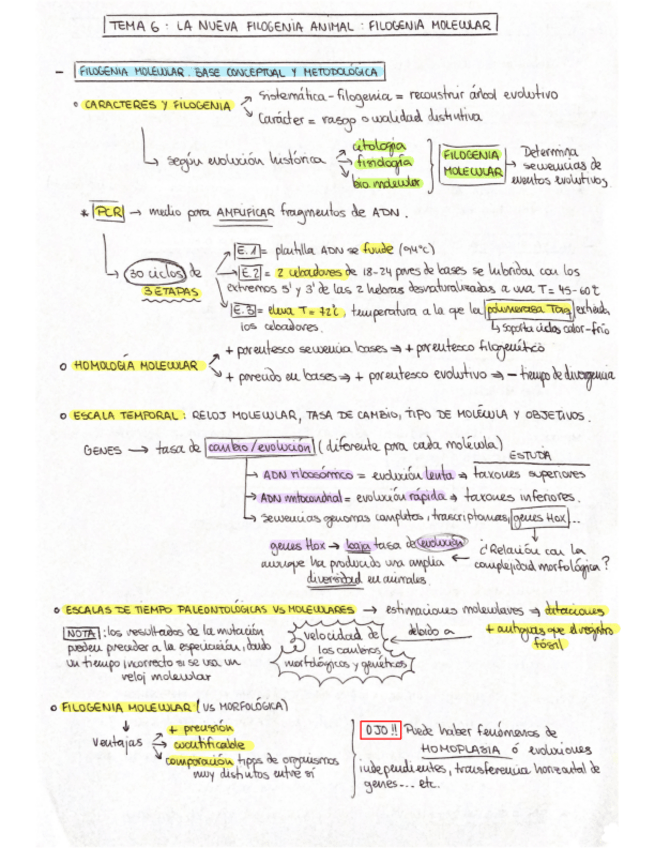 TEMA 6 : LA NUEVA FILOGENIA ANIMAL : FILOGENIA MOLECULAR
- FILOGENIA MOLECULAR. BASE CONCEPTUAL Y METODOLÓGICA
◦ CARACTERES Y FILOGENIA ↗ Sistemática - filogenia = reconstruir árbol evolutivo
↘ Carácter = rasgo o cualidad distintiva
↳ según evolución histórica
↗ citología
→ fisiología
↘ bio. molecular
FILOGENIA MOLECULAR → Determina secuencias de eventos evolutivos.
* PCR → medio para AMPLIFICAR fragmentos de ADN.
↳ 30 ciclos de 3 ETAPAS
↗ E.1 = plantilla ADN se funde (94°C)
→ E.2 = 2 cebadores de 18-24 pares de bases se hibridan con los
extremos 5' y 3' de las 2 hebras desnaturalizadas a una T = 45-60°C
↘ E.3 = eleva T = 72°C, temperatura a la que la polimerasa Taq extiende
los cebadores.
↳ soporta ciclos calor-frío
◦ HOMOLOGÍA MOLECULAR
↗ + parentesco secuencia bases ⇒ + parentesco filogenético
↘ + parecido en bases ⇒ + parentesco evolutivo ⇒ - tiempo de divergencia
◦ ESCALA TEMPORAL : RELOJ MOLECULAR, TASA DE CAMBIO, TIPO DE MOLÉCULA Y OBJETIVOS.
GENES → tasa de cambio/evolución (diferente para cada molécula)
ESTUDIA
→ ADN ribosómico = evolución lenta → taxones superiores
→ ADN mitocondrial = evolución rápida → taxones inferiores.
↳ secuencias genomas completos, transcriptomas, genes Hox ...
genes Hox → baja tasa de evolución
aunque ha producido una amplia
diversidad en animales
← ¿Relación con la
complejidad morfológica?
◦ ESCALAS DE TIEMPO PALEONTOLÓGICAS VS MOLECULARES → estimaciones moleculares ⇒ dataciones
+ antiguas que el registro
fósil
NOTA : los resultados de la mutación
pueden preceder a la especiación, dando
un tiempo incorrecto si se usa un
reloj molecular
velocidad de
los cambios
morfológicos y genéticos
← debido a
◦ FILOGENIA MOLECULAR (VS MORFOLÓGICA)
↓
ventajas
↗ + precisión
→ cuantificable
↘ comparación tipos de organismos
muy distintos entre sí
OJO!! Puede haber fenómenos de
HOMOPLASIA ó evoluciones
independientes, transferencia horizontal de
genes... etc.